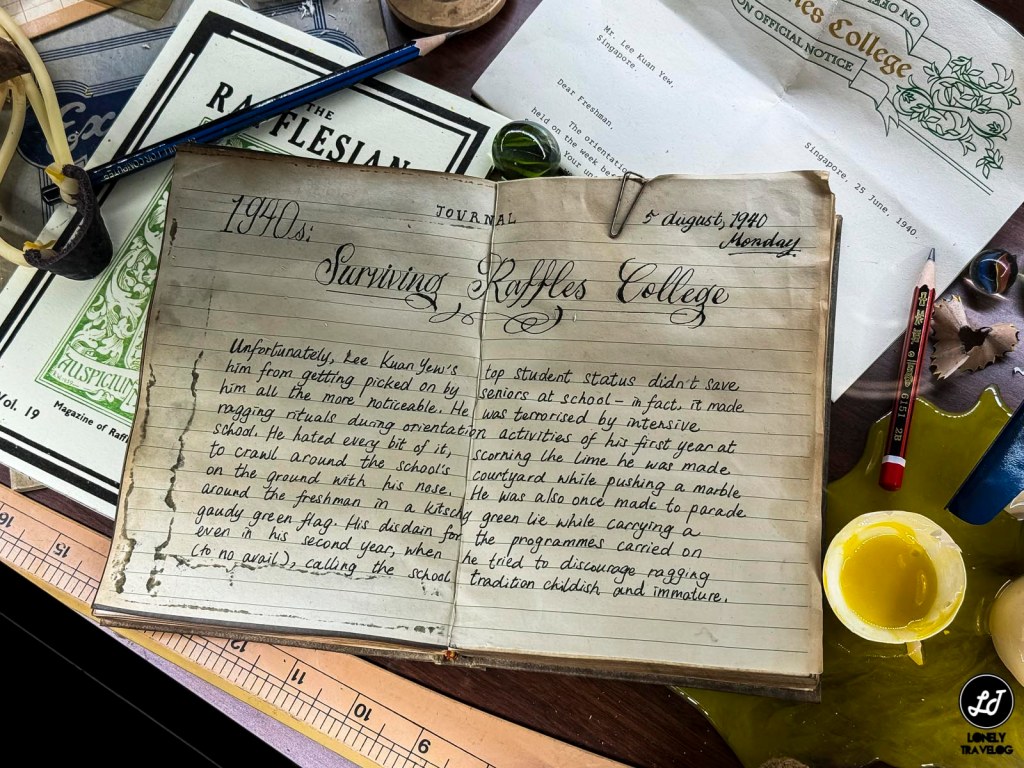 THE
RAFFLESIAN
AUSPICIUM
Vol. 19
Magazine of Raff
College
ON OFFICIAL NOTICE
NO OFF
Mr. Lee Kuan Yew,
Singapore.
Singapore, 25 June, 1940.
Dear Freshman,
The orientation
held on the week be
Your un
JOURNAL
1940s:
5 august, 1940
Monday
Surviving Raffles College
Unfortunately, Lee Kuan Yew's top student status didn't save
him from getting picked on by seniors at school – in fact, it made
him all the more noticeable. He was terrorised by intensive
ragging rituals during orientation activities of his first year at
school. He hated every bit of it, scorning the time he was made
to crawl around the school's courtyard while pushing a marble
on the ground with his nose. He was also once made to parade
around the freshman in a kitschy green tie while carrying a
gaudy green flag. His disdain for the programmes carried on
even in his second year, when he tried to discourage ragging
(to no avail), calling the school tradition childish and immature.
6151 2B
16
15
12
11
10
9
LJ
LONELY
TRAVELOG